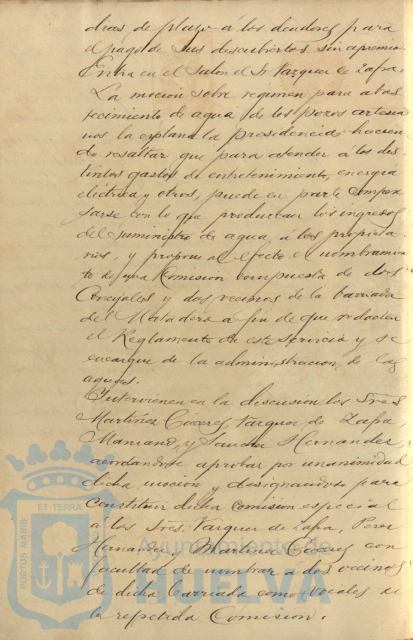 dias de plazo a los deudores para
el pago de sus descubiertos sin apremio.
Entra en el Salon el Sr. Vazquez de Zafra.
La moción sobre regimen para abas
tecimiento de agua de los pozos artesia
nos la explana la presidencia hacien
do resaltar que para atender a los dis
tintos gastos de entretenimiento, energia
electrica y otros, puede en parte compen
sarse con lo que produzcan los ingresos
del suministro de agua, a los propieta
rios, y propone al efecto el nombramien
to de una Comision compuesta de dos
Concejales y dos vecinos de la barriada
del Matadero a fin de que redacten
el Reglamento de este servicio y se
encargue de la administracion de las
aguas.
Intervienen en la discusion los Sres.
Martinez Vazquez de Zafra,
y Sanchez Hernandez,
acordandose aprobar por unanimidad
dicha moción y designandose para
constituir dicha comision especial
a los Sres. Vazquez de Zafra, Perez
Hernandez y Martinez con
facultad de nombrar a dos vecinos
de dicha barriada como vocales de
la repetida Comision.
ET TERRA
PORTUS MARIS
Ayuntamiento de
HUELVA